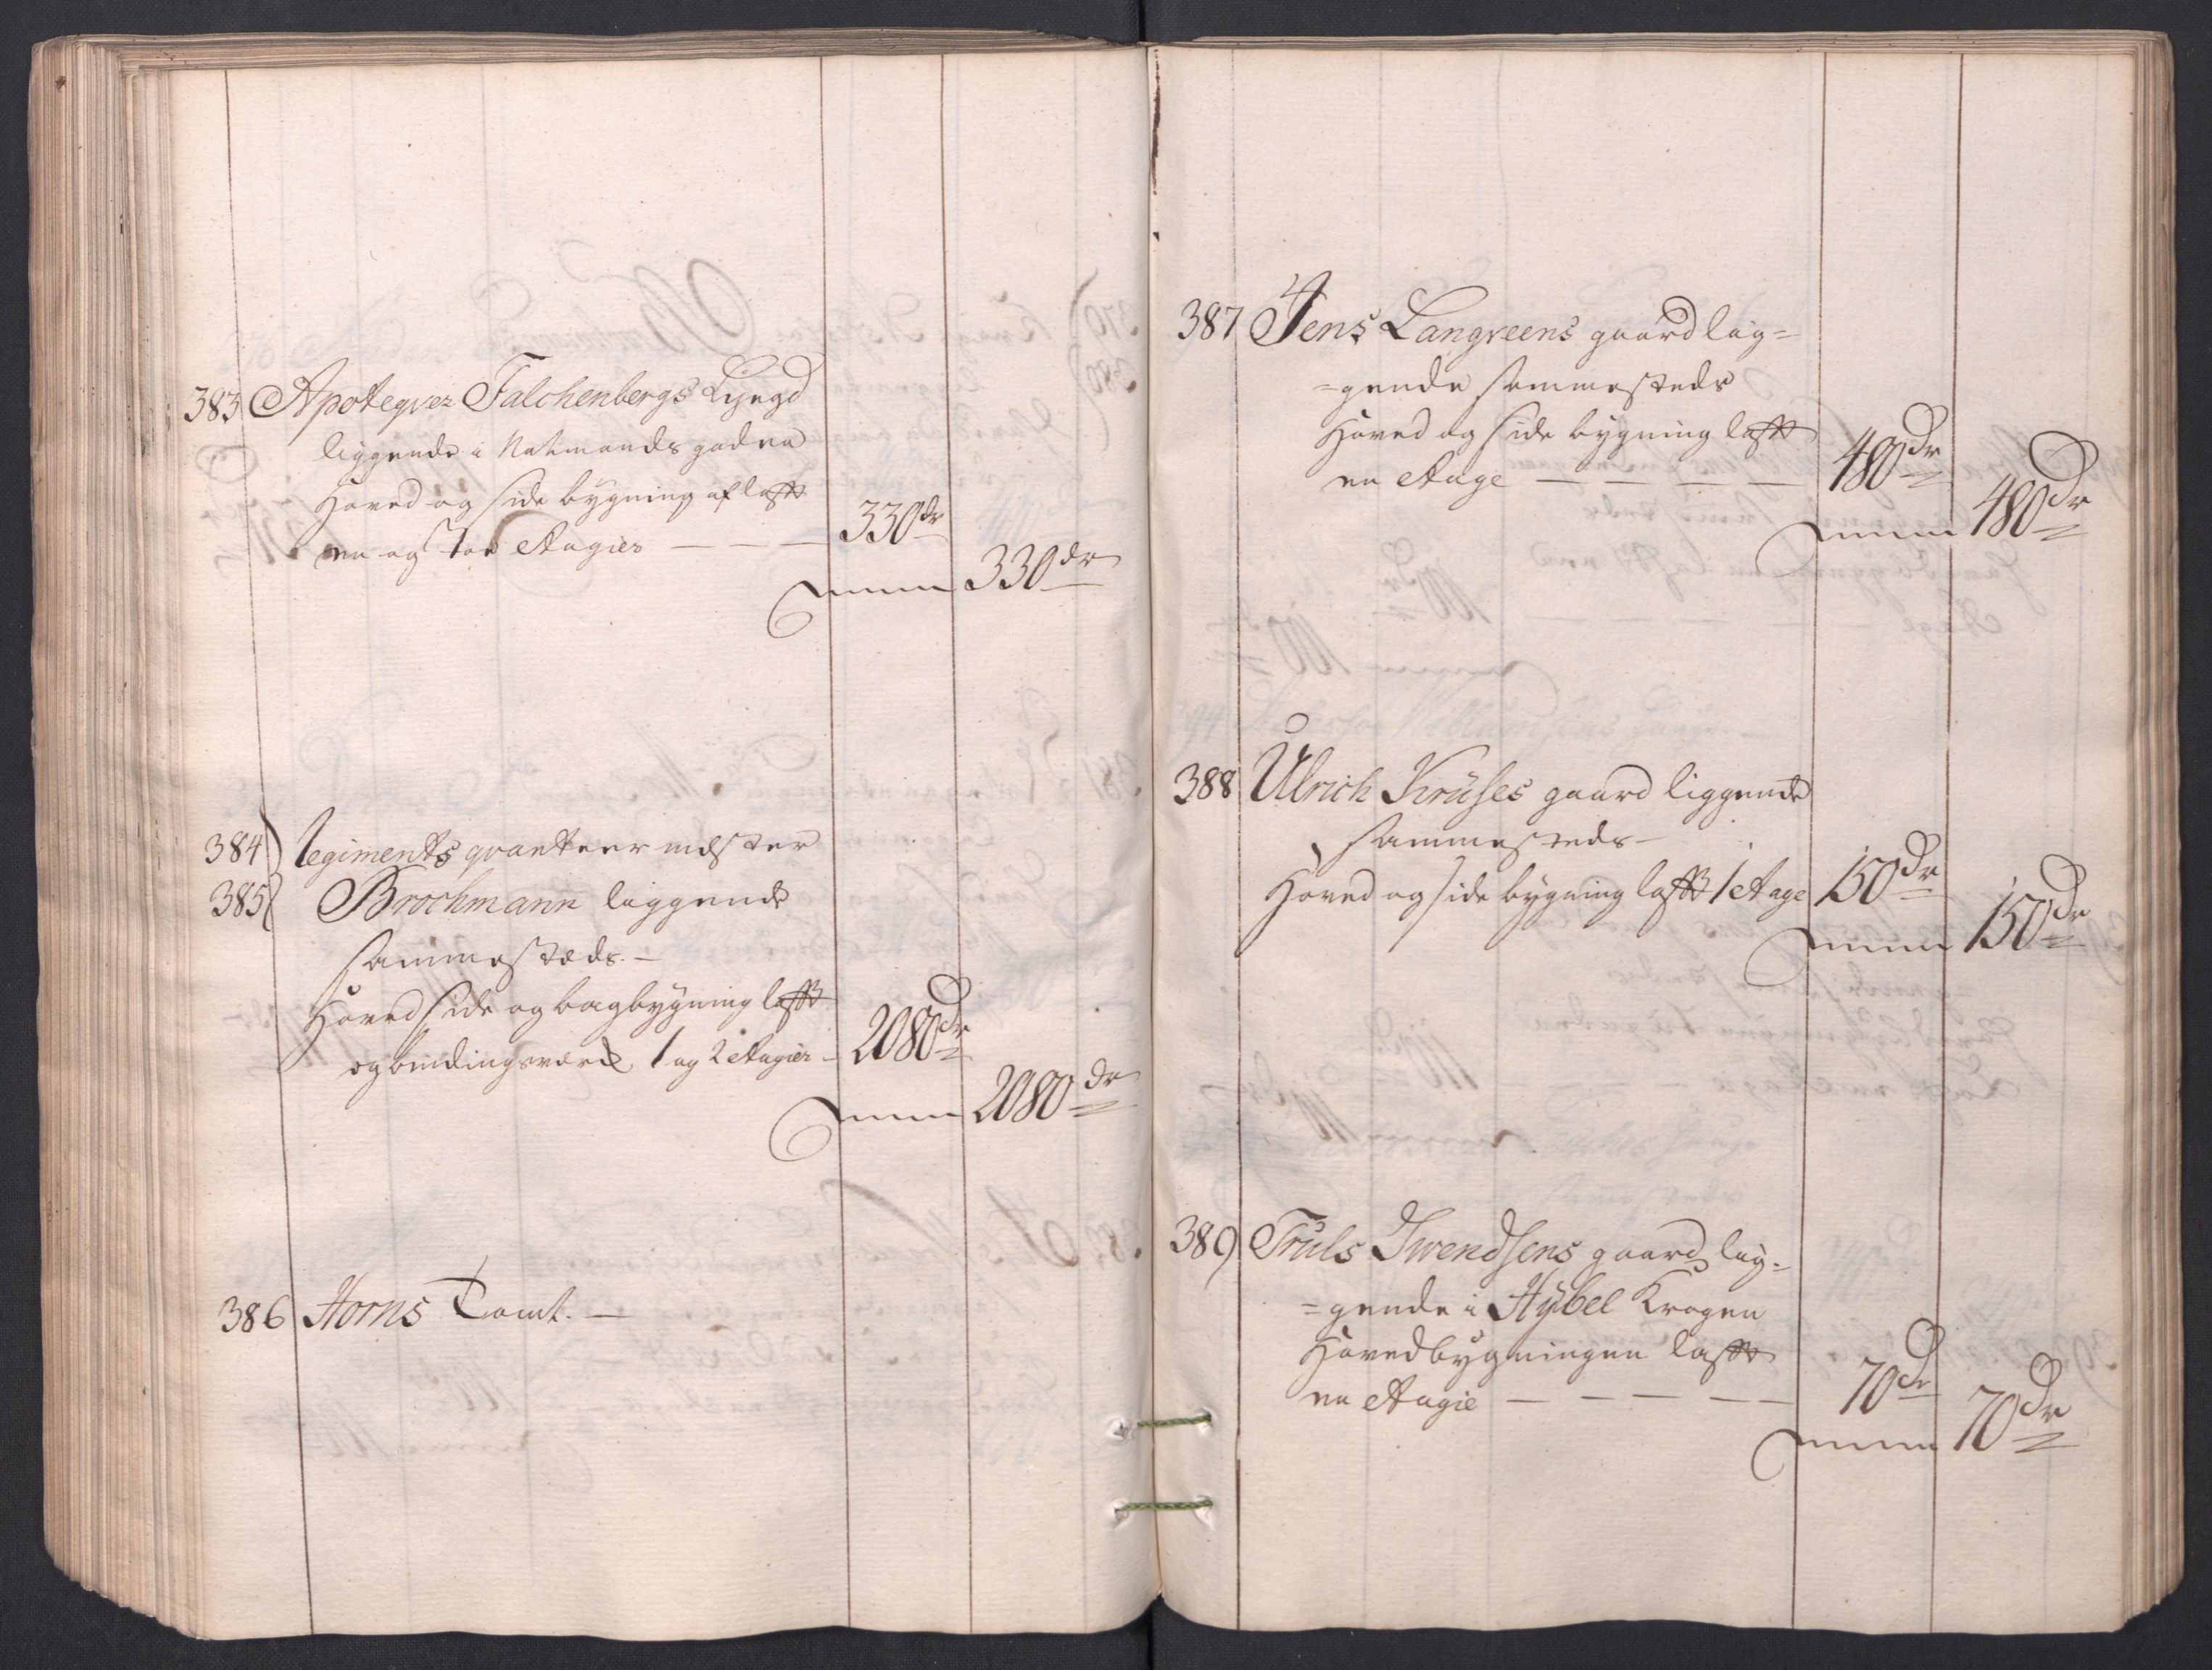 383 Apoteqver Falchenbergs
liggende i Natmands gaden
Hoved og side bygning af lafft
en og toe Etagier — — — 330 dr
Summa 330 dr
384 Regiments qvarteer mester
385 Brochmann liggende
sammesteds —
Hoved side og bagbygning lafft
og bindingsværk 1 og 2 Etagier — 2080 dr
Summa 2080 dr
386 Horns Tomt. —
387 Jens Langreens gaard lig=
=gende sammesteds
Hoved og side bygning lafft
en Etage — — — — 480 dr
Summa 480 dr
388 Ulrich Kruses gaard liggende
sammesteds —
Hoved og side bygning lafft 1 Etage 150 dr
Summa 150 dr
389 Truls Svendsens gaard lig=
=gende i Hybel Krogen
Hovedbygningen lafft
en Etagie — — — — — 70 dr
Summa 70 dr